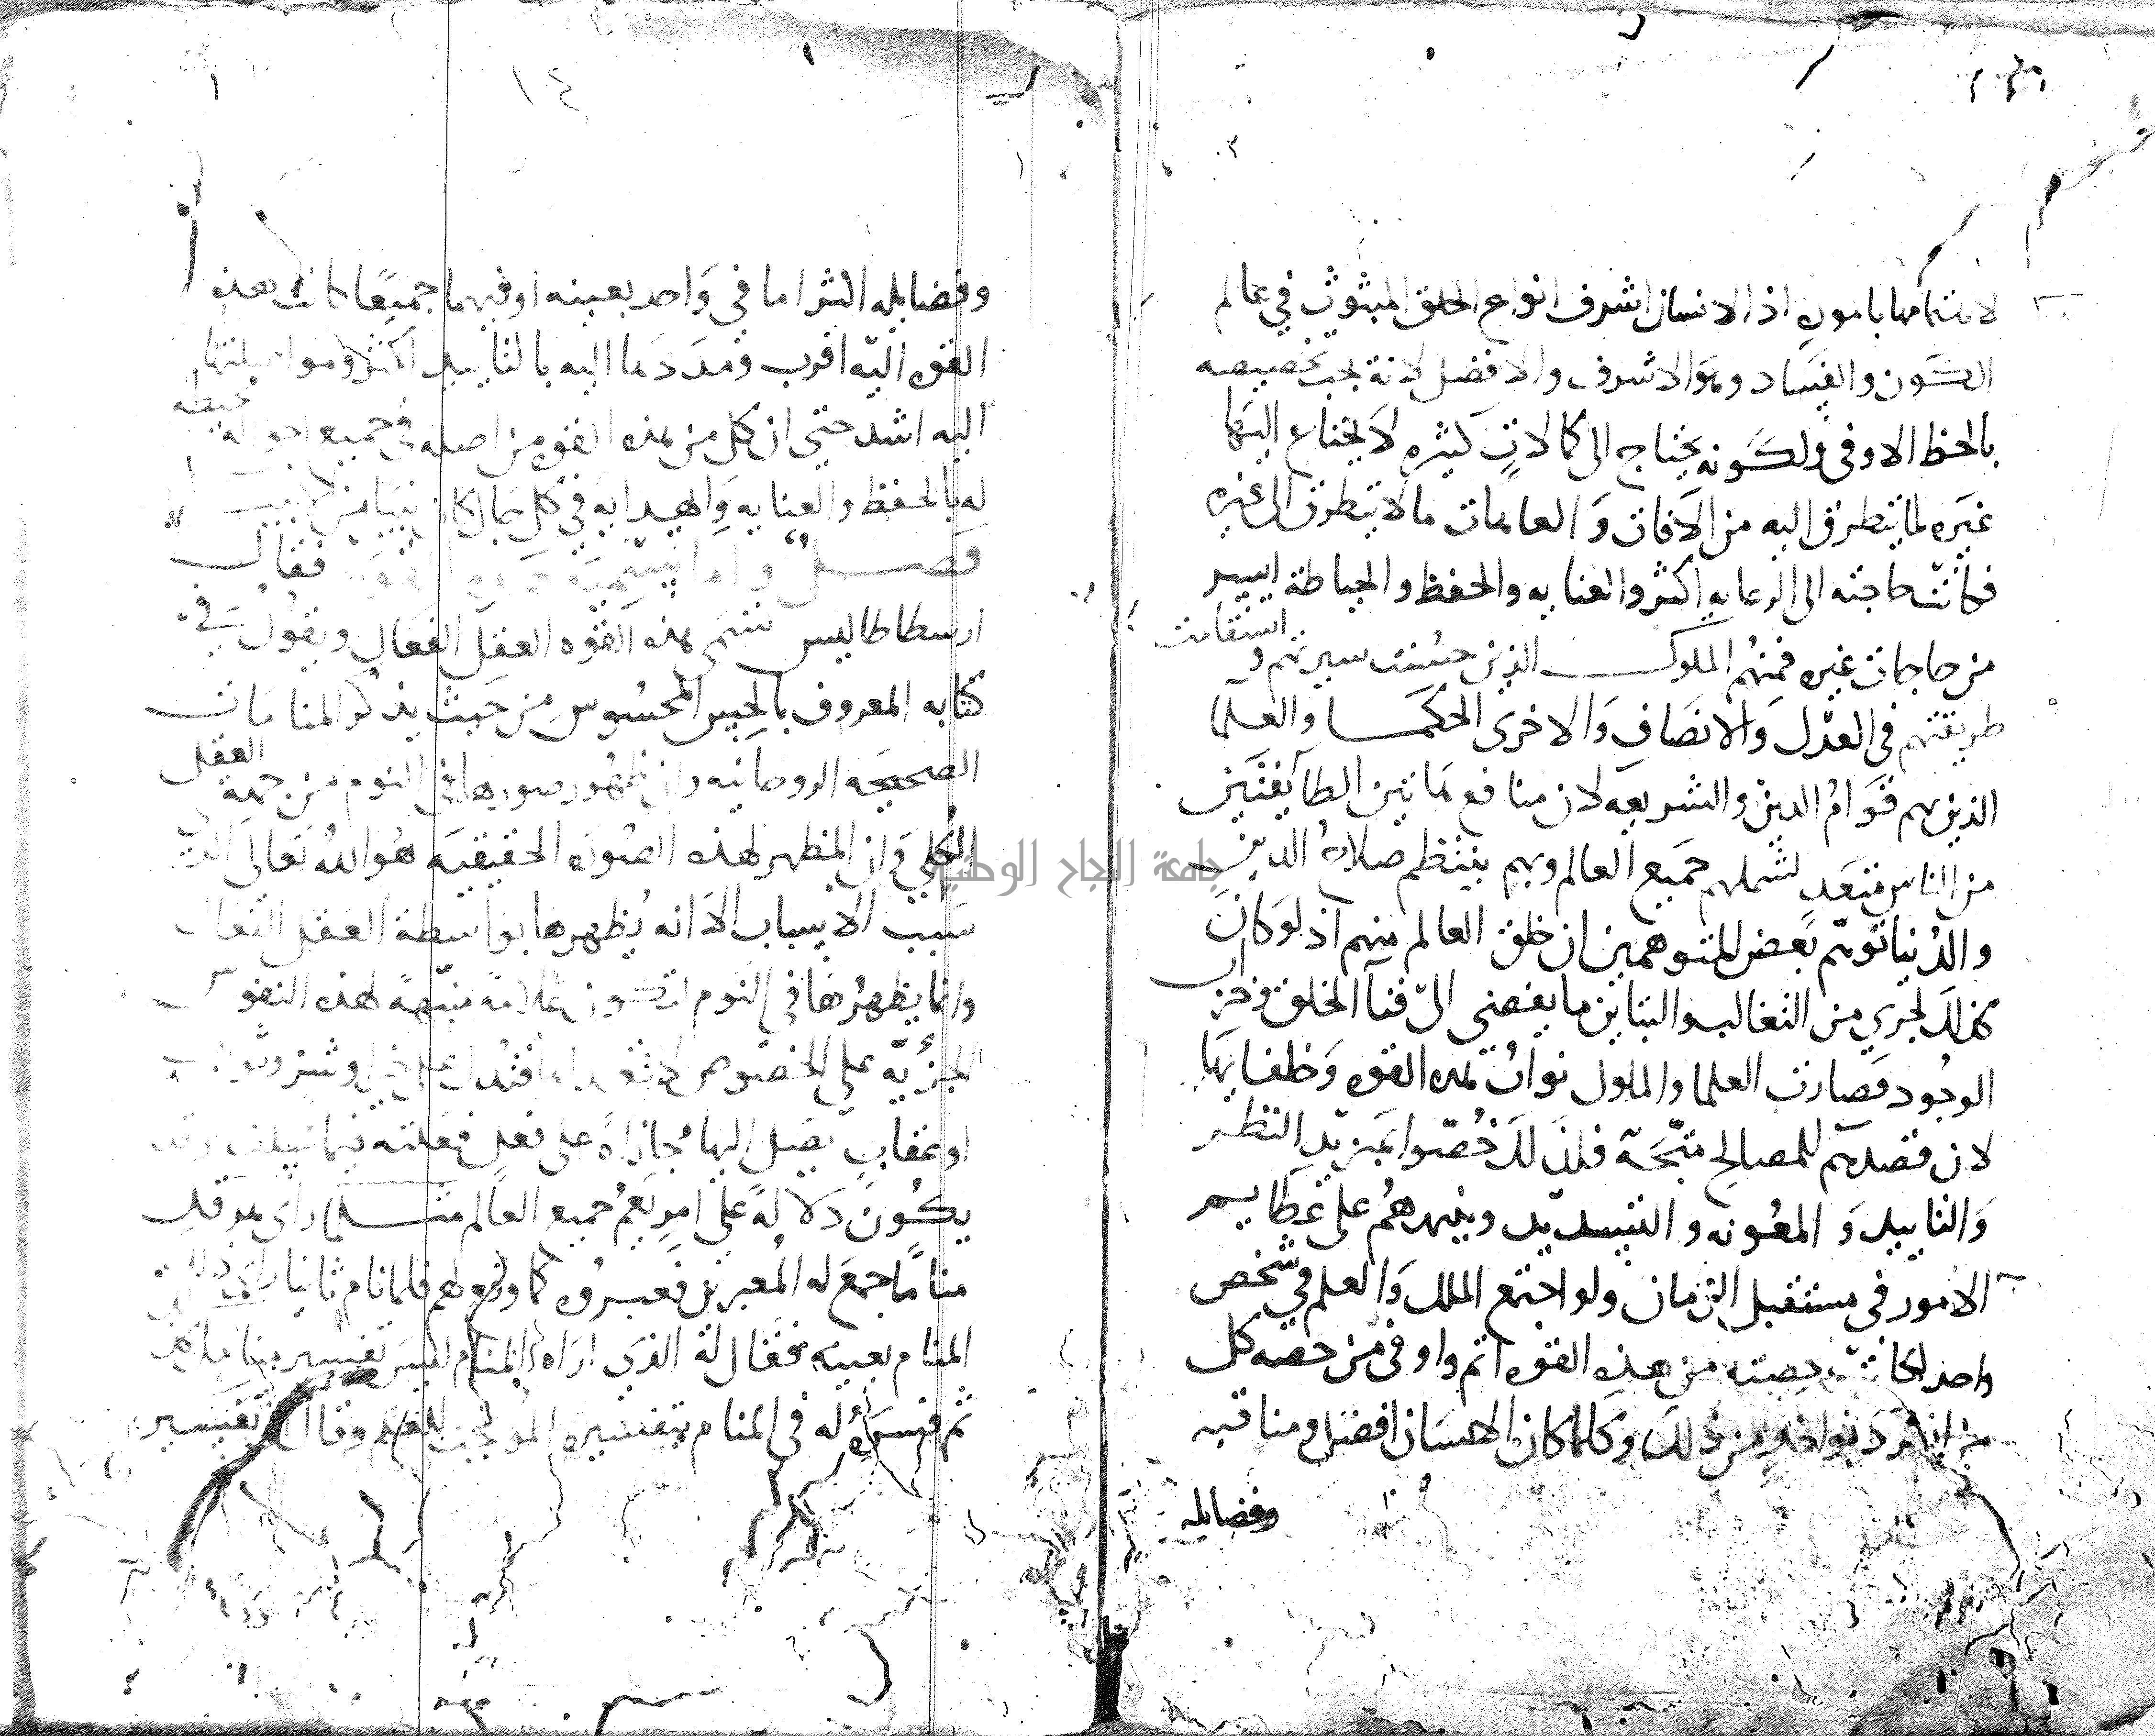 لاهتمامها باموره اذ الانسان اشرف انواع الخلق المبثوث في عالم
الكون والفساد وهو الاشرف والافضل لانه يجب تخصيصه
بالحظ الاوفى ولكونه يحتاج الى كمالات كثيره لا يحتاج اليها
غيره لما يتطرق اليه من الافات و العاهات ما لا يتطرق الى غيره
فكانت حاجته الى الرعايه اكثر والعنايه والحفظ والحياطة
من حاجات غيره فمنهم الملوك الذين حسنت سيرتهم و استقامت
طريقتهم في العدل والانصاف والاخرى الحكما والعلما
الذين هم قوام الدين والشريعه لان منافع هاتين الطايفتين
من الناس لشملهم جميع العالم وبهم ينتظم صلاح الدين
والدنيا توهم بعض المتوهمين ان خلق العالم منهم اذ لو كان
كذلك لجرى من التغالب والتباين ما يفضي الى فنآ الخلق
الوجود فصارت العلما والملوك نواب هذه القوه وخلفايها
لان قصدهم للمصالح متجه فلذلك خصوا بمزيد النظر
والتاييد و المعونه و التسديد وينبههم على عظايم
الامور في مستقبل الزمان ولو اجتمع الملك والعلم في شخص
واحد لكانت حصته من هذه القوه اتم واوفى من حصه كل
من انفرد بواحد من ذلك وكلما كان الانسان افضل ومناقبه
وفضايله
وفضايله اكثر اما في واحد بعينه او فيهما جميعا كانت هذه
القوه اليه اقرب ومددها اليه بالتاييد اكثر ومواصلتها
اليه اشد حتى ان كل من هذه القوه من اصله في جميع احواله محيطه
له بالحفظ والعنايه والهدايه في كل حال كان
فصل واما تسميه هذه القوه فقال
ارسطاطاليس تسمى هذه القوه العقل الفعال ويقول في
كتابه المعروف بالحس المحسوس من حيث يذكر المنامات
الصحيحه الروحانيه وان ظهور صورها في النوم من جهة العقل
الكلي وان المظهر لهذه الصوره الحقيقيه هو الله تعالى الذي
سبب الاسباب الا انه يظهرها بواسطة العقل الفعال
وانما يظهرها في النوم لتكون علامة منبهة لهذه النفوس
الجزئيه على الخصوص
او عقاب يصل اليها مجازاة على فعل فعلته فيما سلف وقد
يكون دلالة على امر يعم جميع العالم مثلما راى هرقل
مناما جمع له المعبرين فعبروه كما وقع لهم فلما نام ثانيا راى ذلك
المنام بعينه فقال له الذي اراه المنام ليس تفسير منامك
ثم فسره له في المنام بتفسيره وقال تفسير